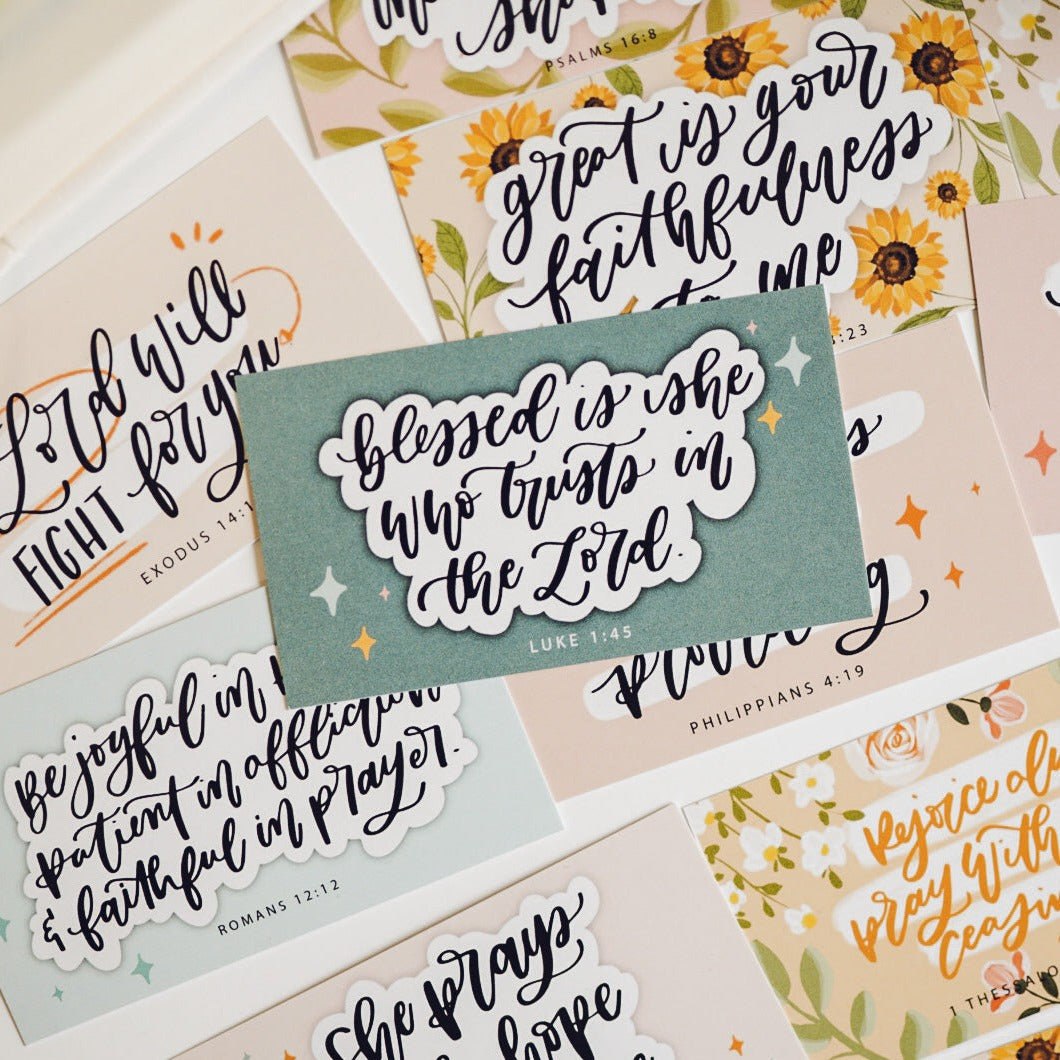 PSALMS 16:8
great is your
faithfulness
to me
:23
Lord will
FIGHT for you
EXODUS 14:1
blessed is she
who trusts in
the Lord.
LUKE 1:45
PHILIPPIANS 4:19
Be joyful in
patient in affliction
& faithful in prayer.
ROMANS 12:12
Rejoice
pray with
1 THESSALO
she prays
hope